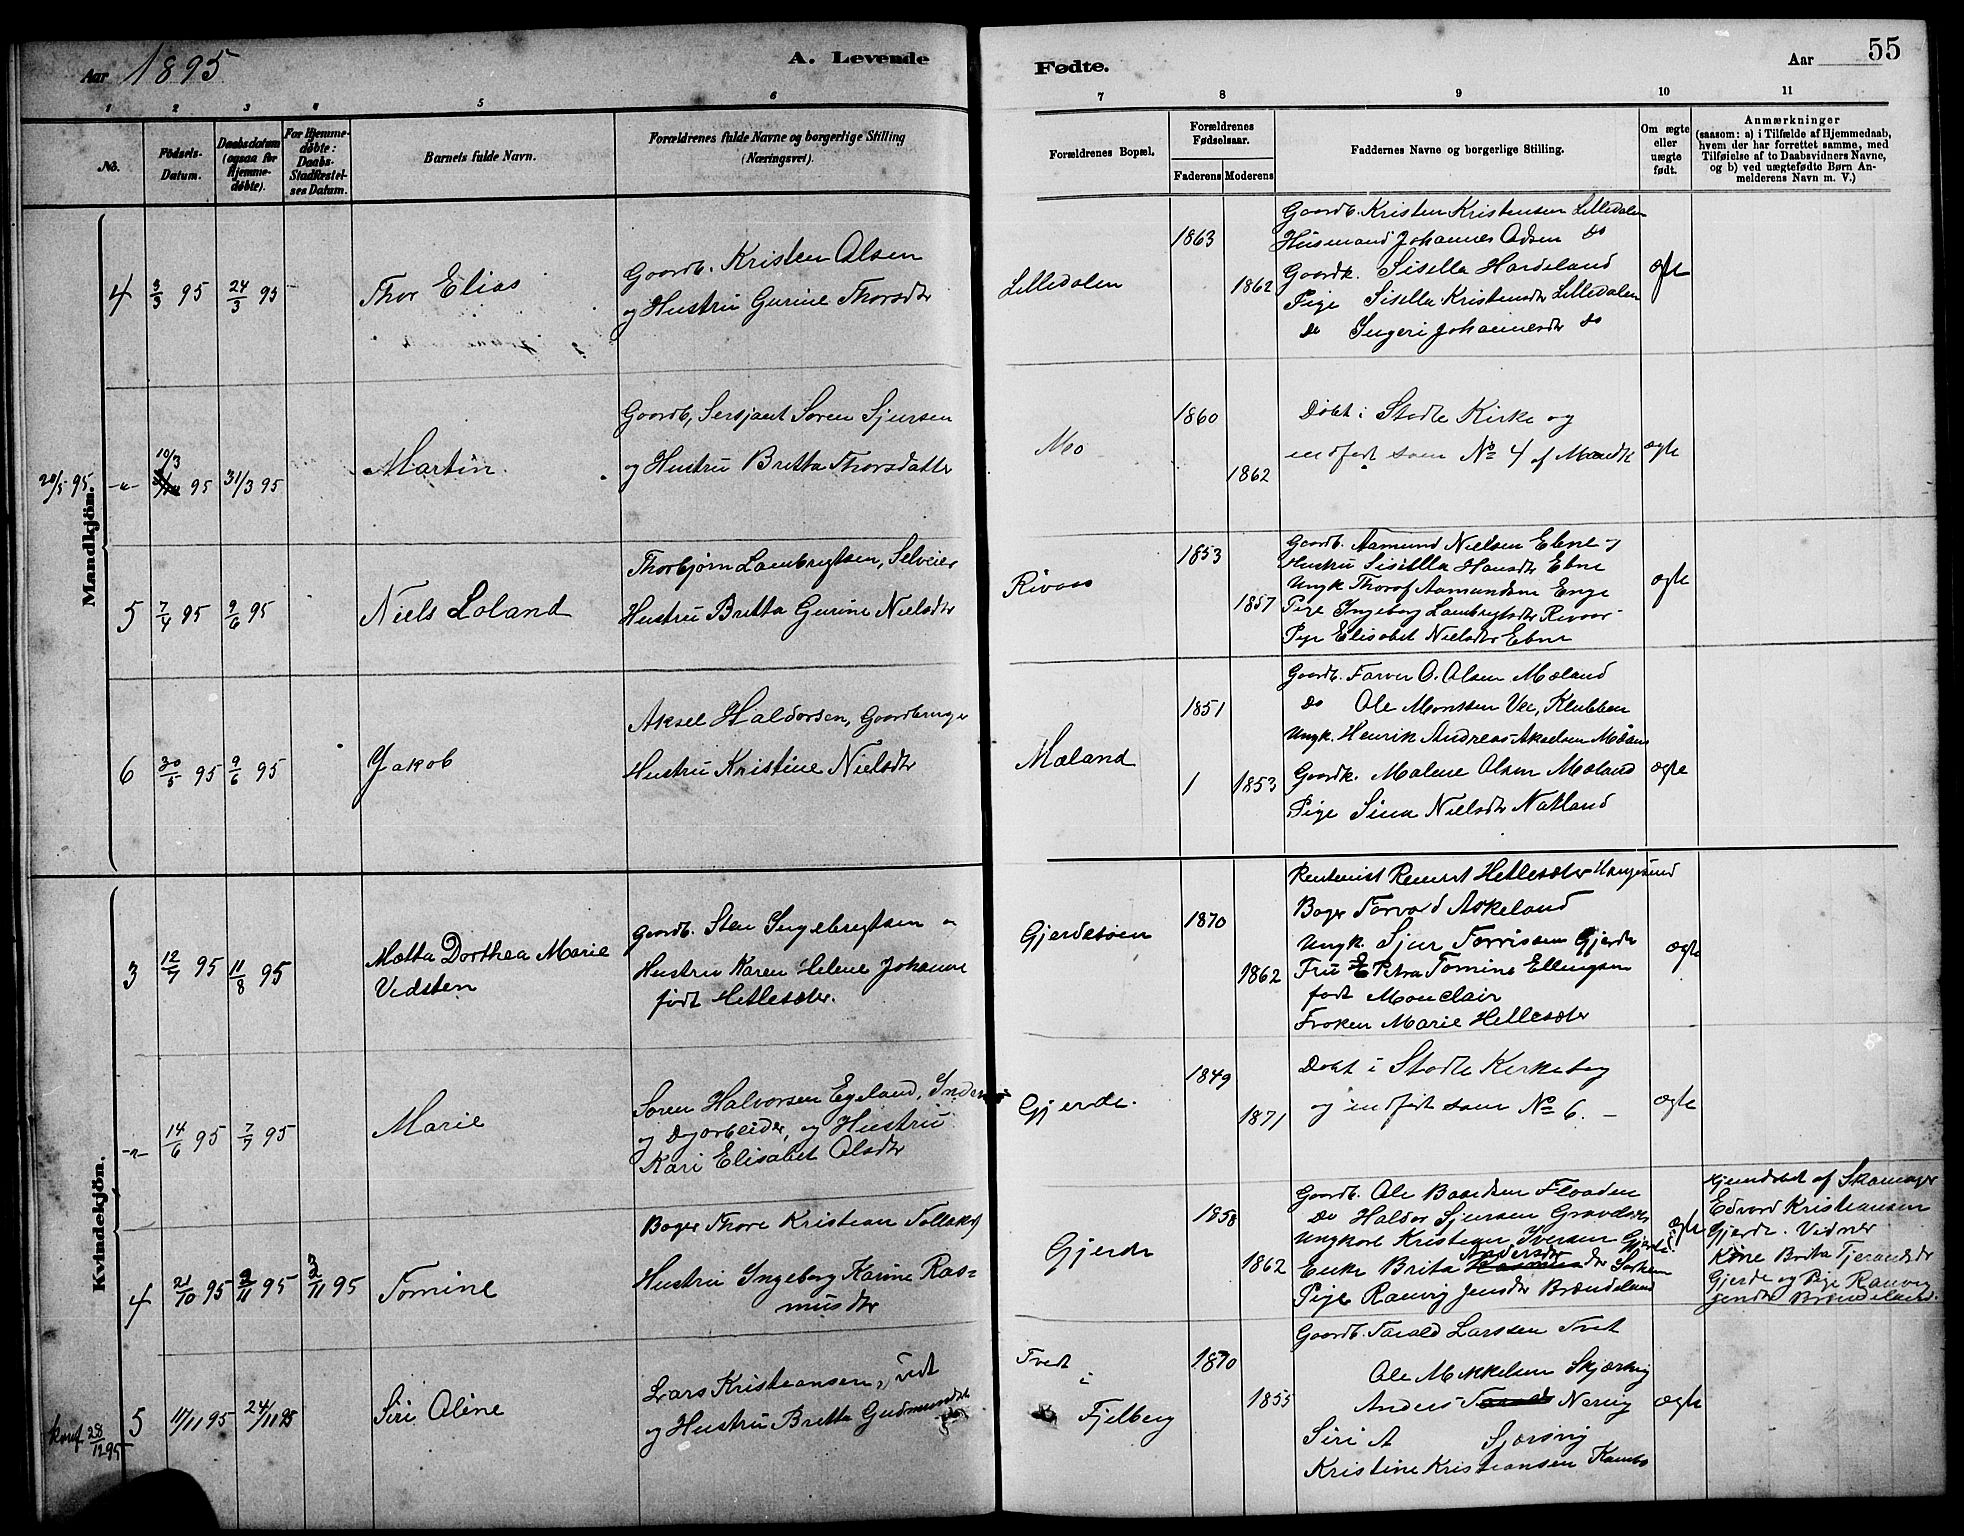 Aar 1895
A. Levende
Fødte.
Aar
55
1 2 3 4 5 6 7 8 9 10 11
No.
Födsels-Datum.
Daabsdatum (ogsaa for Hjemme-døbte).
For Hjemme-døbte: Daabs-Stadfæstel-ses Datum.
Barnets fulde Navn.
Forældrenes fulde Navne og borgerlige Stilling (Næringsvei).
Forældrenes Bopæl.
Forældrenes Fødselsaar.
Faderens Moderens
Faddernes Navne og borgerlige Stilling.
Om ægte eller uægte født.
Anmærkninger
(saasom: a) i Tilfælde af Hjemmedaab,
hvem der har forrettet samme, med
Tilføielse af to Daabsvidners Navne,
og b) ved uægtefødte Børn An-
melderens Navn m. V.)
Mandkjön.
4 3/3 95 24/3 95
Thor Elias
Gaardb. Kristen Olsen
og Hustru Gurine Thorsdtr
Lilledalen
1863
1862
Gaardb. Kristen Kristensen Lilledalen
Husmand Johannes Odsen do
Gaardk. Sisella Hardeland
Pige Sisella Kristensdtr Lilledalen
do Ingeri Johannesdtr do
ægte
20/5 95
-"- 10/3 95 31/3 95
Martin
Gaardb, Sersjant Søren Sjursen
og Hustru Britta Thorsdatter
Mo
1860
1862
Døbt i Stødle Kirke og
indført som No 4 af Mandk
ægte
5 7/4 95 9/6 95
Niels Loland
Thorbjørn Lambregtsen, Selveier
Hustru Britta Gurine Nielsdtr
Rivaas
1853
1857
Gaardb. Aamund Nielsen Ebne og
Hustru Sisilla Hansdtr Ebne
Ungk Thorof Aamundsen Enge
Pige Ingeborg Lambregtsdtr Rivaas
Pige Elisabet Nielsdtr Ebne
ægte
6 30/5 95 9/6 95
Jakob
Aksel Haldorsen, Gaardbruger
Hustru Kristine Nielsdtr
Mæland
1851
1 1853
Gaardb. Farver O. Olsen Mæland
do Ole Montsen Vee, Klubben
Ungk. Henrik Andreas Akselsen Mæland
Gaardk. Malene Olsen Mæland
Pige Sina Nielsdtr Natland
ægte
Kvindekjön.
3 12/7 95 11/8 95
Matta Dorthea Marie
Vedsten
Gaardb. Sten Ingebregtsen o
Hustru Karen Helene Johanne
født Hetlesæter.
Gjerdestøen
1870
1862
Rentenist Hetlesæter Haugesund
Bager Torvard Askeland
Ungk. Sjur Torrissen Gjerde
Fru Petra Tomine Ellingsen
født Monclair
Frøken Marie Hetlesæter
ægte
-"- 14/6 95 7/7 95
Marie
Søren Halvorsen Egeland, Inder
og Dagarbeider, og Hustru
Kari Elisabet Olsdtr
Gjerde.
1849
1871
Døbt i Stødle Kirkebog
og indført som No 6. -
ægte
4 21/10 95 3/11 95 3/11 95
Tomine
Bager Thore Kristian Tollaks
Hustru Ingeborg Karine Ras=
musdtr
Gjerde
1858
1862
Gaardb. Ole Baardsen Fladen
Do Haldor Sjursen Gravdal
Ungkarl Kristian Iversen Gjerde
Enke Brita Andersdtr
Pige Ranvig Jensdtr Brændeland
ægte
Hjemdøbt af Skomager
Edvard Kristiansen
Gjerde. Vidner
Kone Brita Tjerandsdtr
Gjerde og Pige Ranvig
Jensdtr Brændeland.
konf 28/12 95
5 11/11 95 24/11 95
Siri Oline
Lars Kristiansen, Tvedt
og Hustru Britta Gudmundsdtr
Tvedt
i
Fjelberg
1870
1855
Gaardb. Tarald Larssen Tvet
Ole Mikkelsen Skjærvig
Anders Nærvig
Siri A Sjørvig
Kristine Kristiansen Kambo
ægte